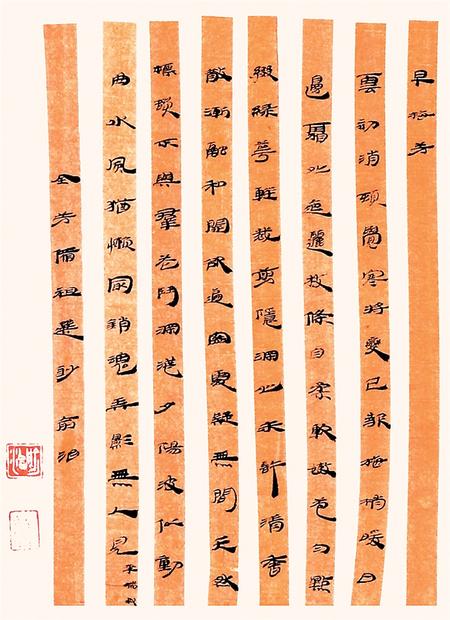 早梅芳
雪初消頓覺寒將變已報梅梢暖日
邊霜外迤邐枝條自柔軟嫩苞勻點
綴綠萼輕裁剪隱深心未許清香
散漸融和開欲遍密處疑無間天然
標韻不與羣花鬥深淺夕陽波似動
曲水風猶懶最銷魂弄影無人見 李端叔
全芳備祖選鈔